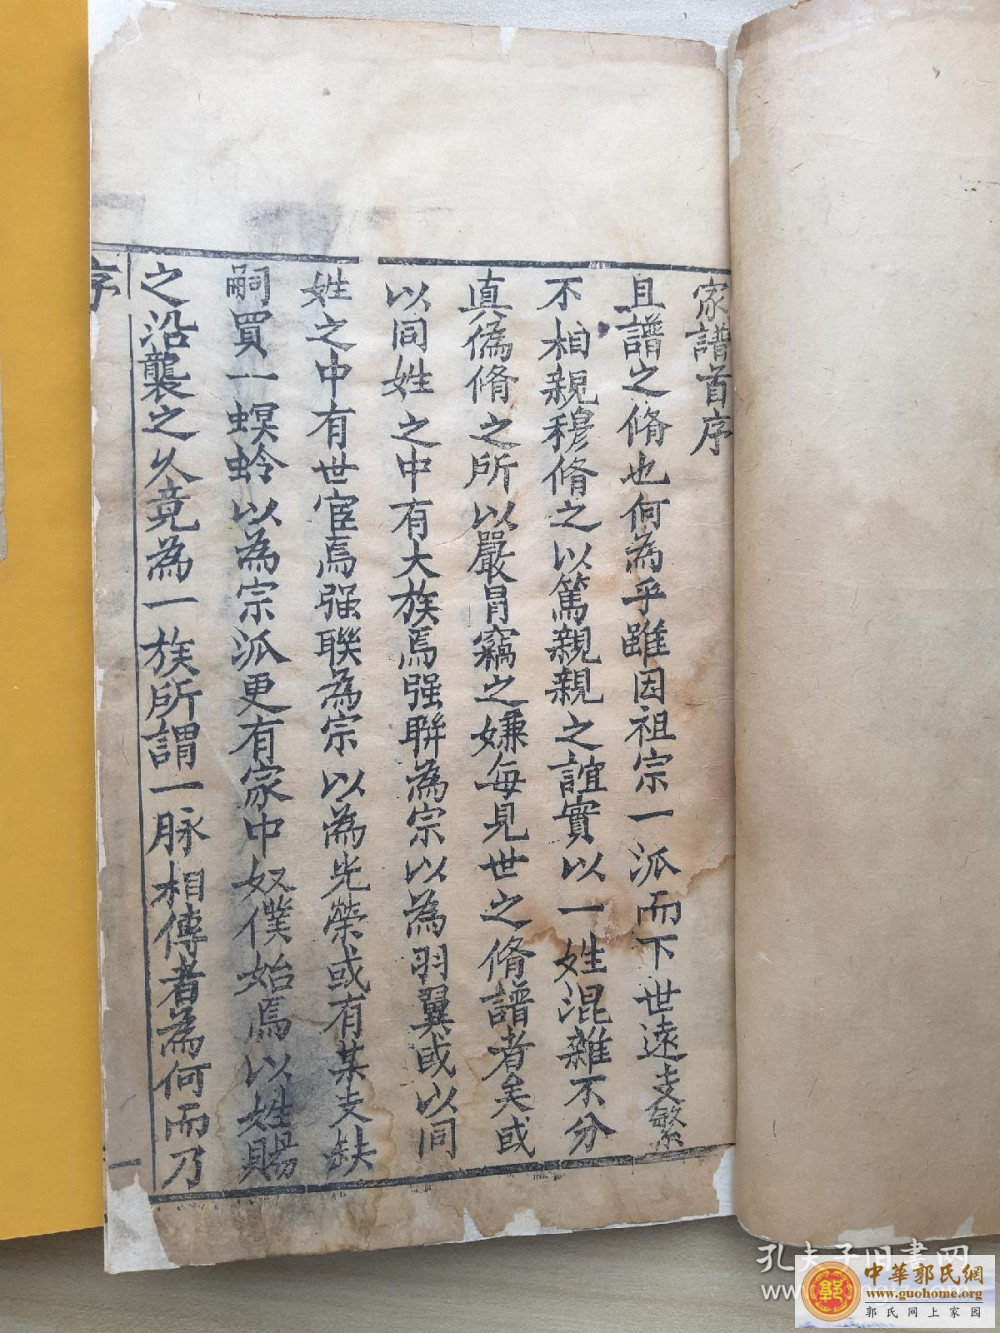 家譜首序
且譜之脩也何為乎雖因祖宗一派而下世遠支繁
不相親穆脩之以篤親親之誼實以一姓混雜不分
真偽脩之所以嚴冒竊之嫌每見世之脩譜者矣或
以同姓之中有大族焉强聨為宗以為羽翼或以同
姓之中有世宦焉强聮為宗以為光榮或有某支缺
嗣買一螟蛉以為宗派更有家中奴僕始焉以姓賜
之沿襲之久竟為一族所謂一脉相傳者為何而乃
序
一
孔夫子旧書网
中華郭氏網
www.guohome.org
郭氏网上家园